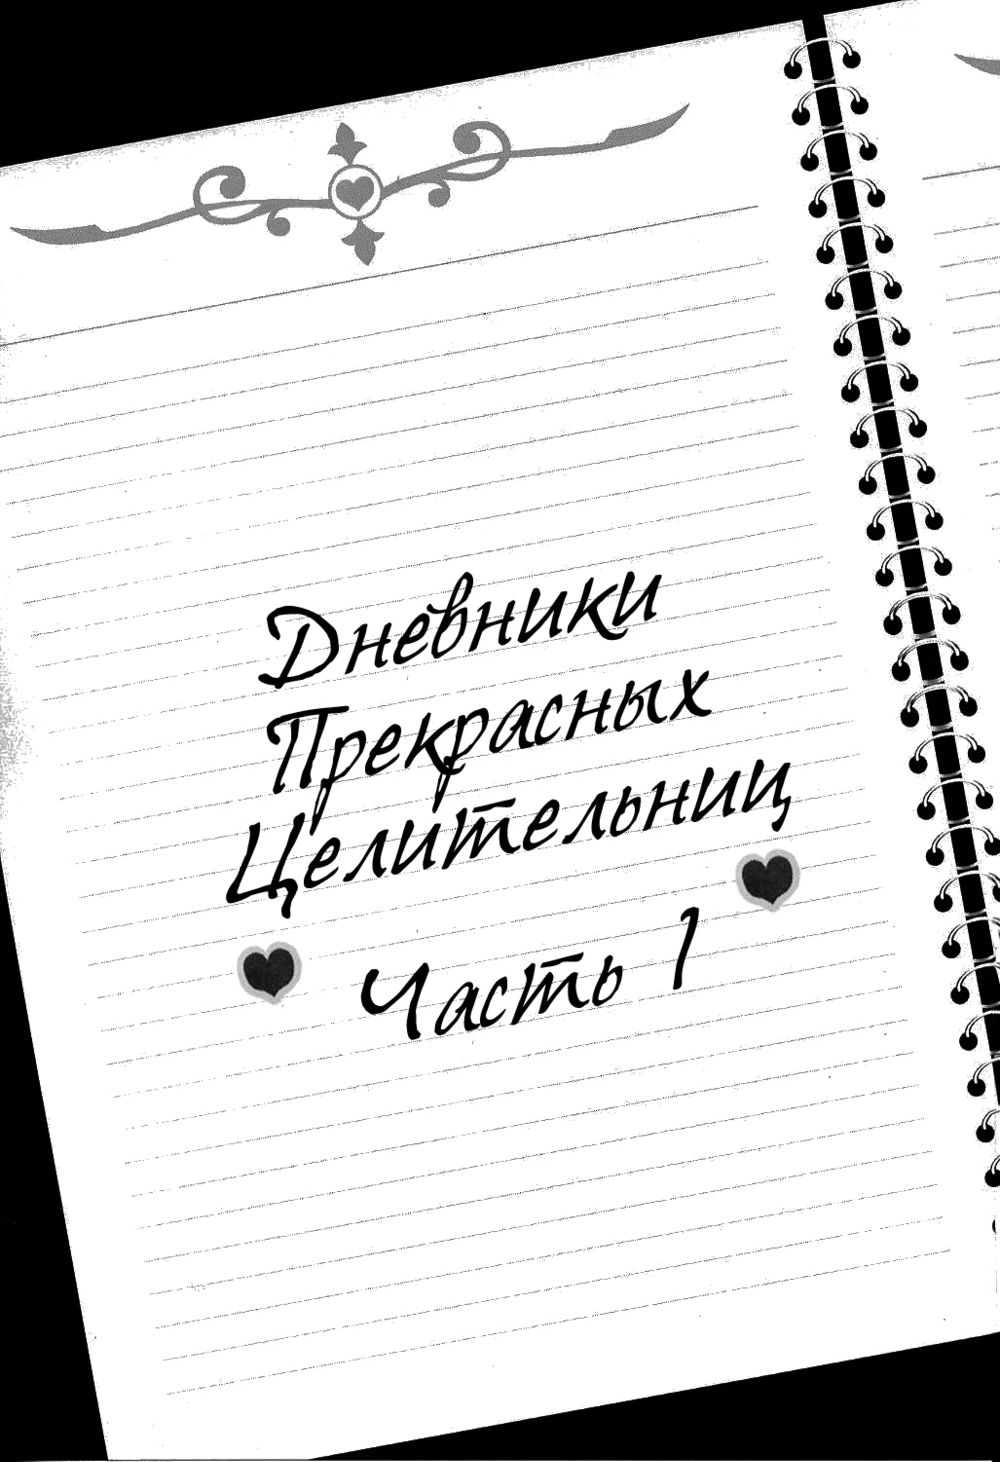 Дневники
Прекрасных
Целительниц
Часть 1